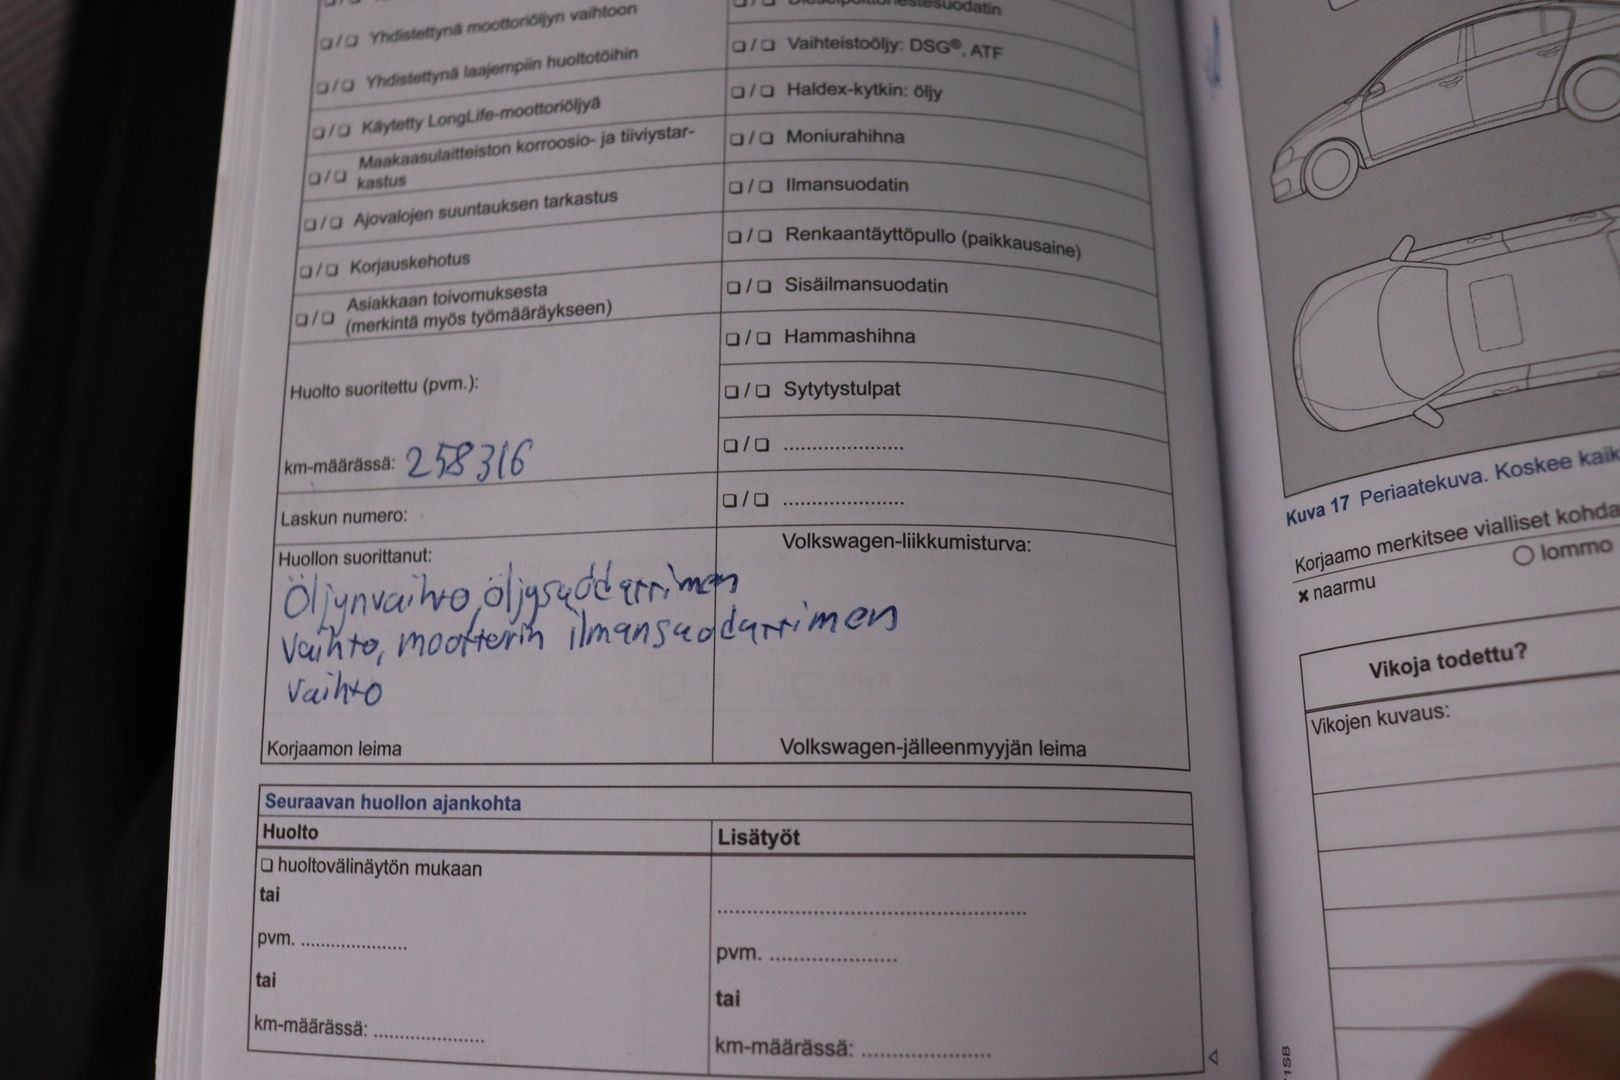 ❏ / ❏ Yhdistettynä moottoriöljyn vaihtoon
❏ / ❏ Yhdistettynä laajempiin huoltotöihin
❏ / ❏ Käytetty LongLife-moottoriöljyä
❏ / ❏ Maakaasulaitteiston korroosio- ja tiiviystar-
kastus
❏ / ❏ Ajovalojen suuntauksen tarkastus
❏ / ❏ Korjauskehotus
❏ / ❏ Asiakkaan toivomuksesta
(merkintä myös työmääräykseen)
Huolto suoritettu (pvm.):
km-määrässä: 258316
Laskun numero:
Huollon suorittanut:
Öljynvaihto, öljysuodattimen
vaihto, moottorin ilmansuodattimen
vaihto
Korjaamon leima
❏ / ❏ Dieselpolttonestesuodatin
❏ / ❏ Vaihteistoöljy: DSG®, ATF
❏ / ❏ Haldex-kytkin: öljy
❏ / ❏ Moniurahihna
❏ / ❏ Ilmansuodatin
❏ / ❏ Renkaantäyttöpullo (paikkausaine)
❏ / ❏ Sisäilmansuodatin
❏ / ❏ Hammashihna
❏ / ❏ Sytytystulpat
❏ / ❏ .....................
❏ / ❏ .....................
Volkswagen-liikkumisturva:
Volkswagen-jälleenmyyjän leima
Seuraavan huollon ajankohta
Huolto
❏ huoltovälinäytön mukaan
tai
pvm. ...................
tai
km-määrässä: ...................
Lisätyöt
......................................................
pvm. ......................
tai
km-määrässä: ......................
Kuva 17 Periaatekuva. Koskee
Korjaamo merkitsee vialliset
✖ naarmu
○ lommo
Vikoja todettu?
Vikojen kuvaus: